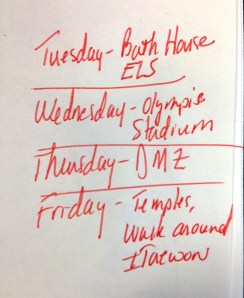 Tuesday- Bath House
ELS
Wednesday- Olympic
Stadium
Thursday- DMZ
Friday- Temples,
walk around
ITaewon